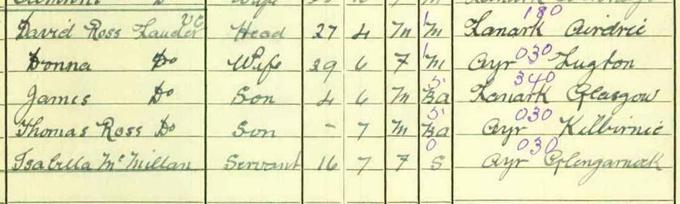 David Ross Lauder VC Head 27 4 M 1 M 180 Lanark Airdrie
Donna Do Wife 29 6 F 1 M 030 Ayr Lugton
James Do Son 4 6 M 5 Ba 340 Lanark Glasgow
Thomas Ross Do Son - 7 M 5 Ba 030 Ayr Kilbirnie
Isabella McMillan Servant 16 7 F 0 S 030 Ayr Glengarnock